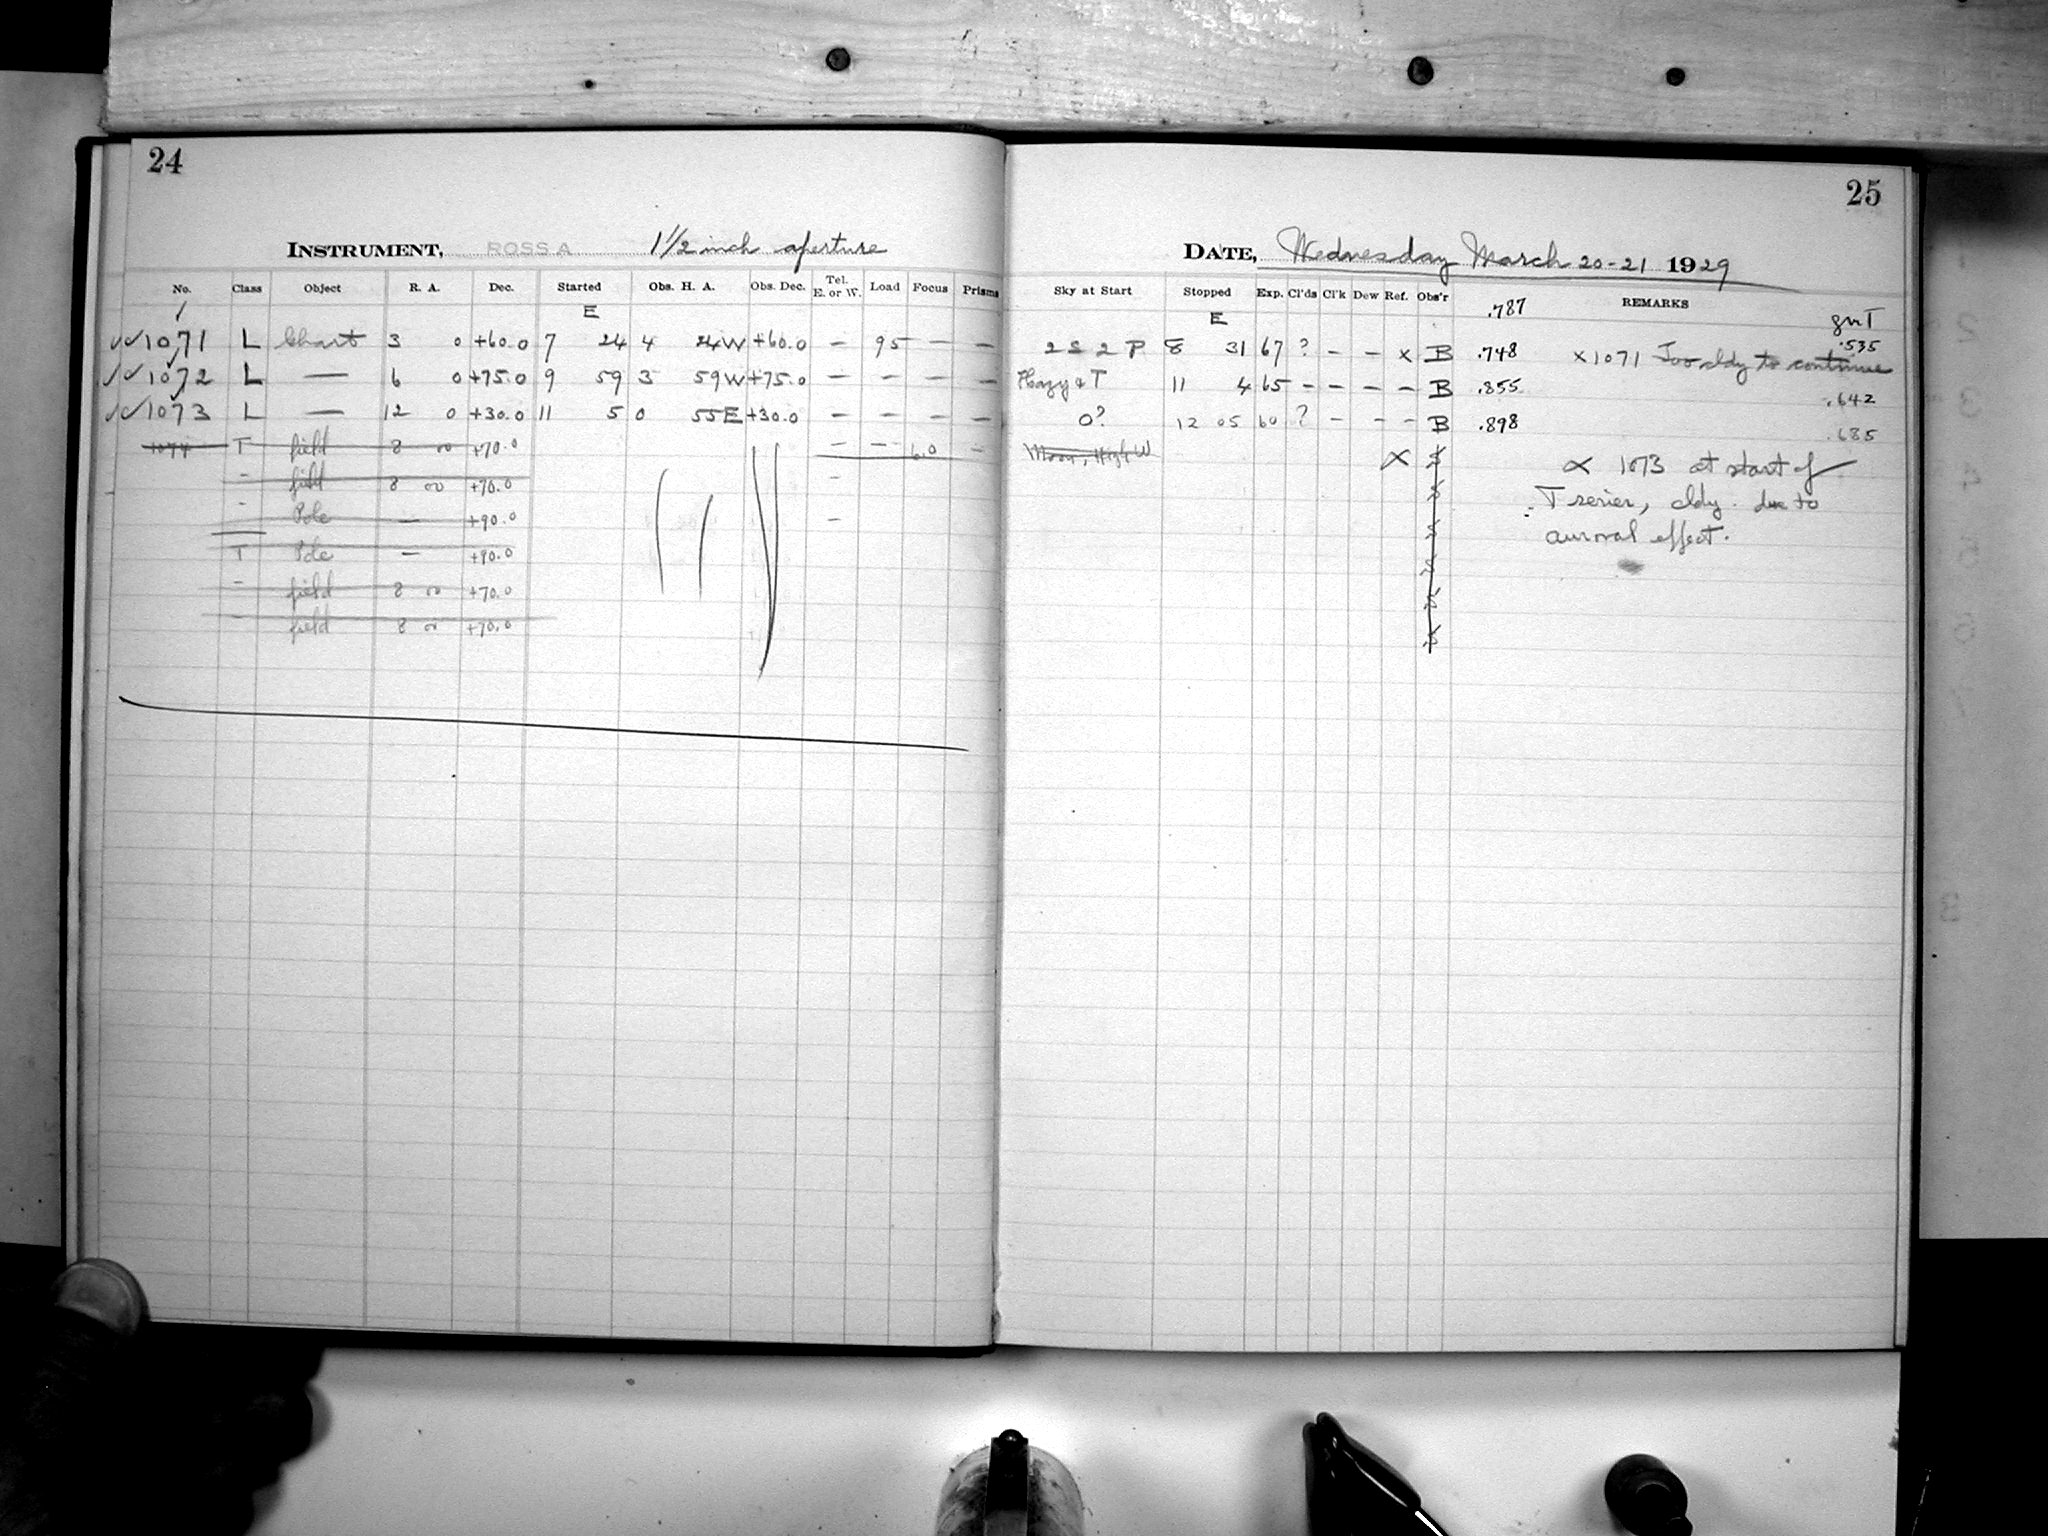 24
INSTRUMENT, ROSS A 1 1/2 inch aperture
No. Class Object R. A. Dec. Started Obs. H. A. Obs. Dec. Tel. E. or W. Load Focus Prisms
E
1071 L Chart 3 0 +60.0 7 24 4 24W +60.0 — 95 — —
1072 L — 6 0 +75.0 9 59 3 59W +75.0 — — — —
1073 L — 12 0 +30.0 11 5 0 55E +30.0 — — — —
1074 T field 8 00 +70.0 — — 6.0 —
" field 8 00 +70.0 —
" Pole — +90.0 —
T Pole — +90.0
" field 8 00 +70.0
" field 8 00 +70.0
25
DATE, Wednesday March 20-21 1929
Sky at Start Stopped Exp. Cl'ds Cl'k Dew Ref. Obs'r .787 REMARKS
E GMT
.535
2 S 2 P 8 31 67 ? — — x B .748 x 1071 Too cldy to continue
Hazy & T 11 4 65 — — — — B .855 .642
0? 12 05 60 ? — — — B .898 .685
Moon, High W X S ∝ 1073 at start of
T series, cldy. due to
auroral effect.